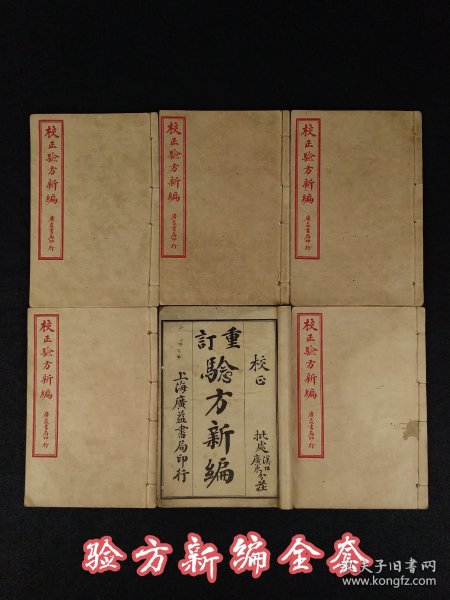 校正驗方新編
廣益書局印行
校正驗方新編
廣益書局印行
校正驗方新編
廣益書局印行
校正驗方新編
廣益書局印行
校正
重訂
驗方新編
上海廣益書局印行
批處
漢口
廣東
分莊
校正驗方新編
廣益書局印行
验方新编全套
孔夫子旧书网
www.kongfz.com